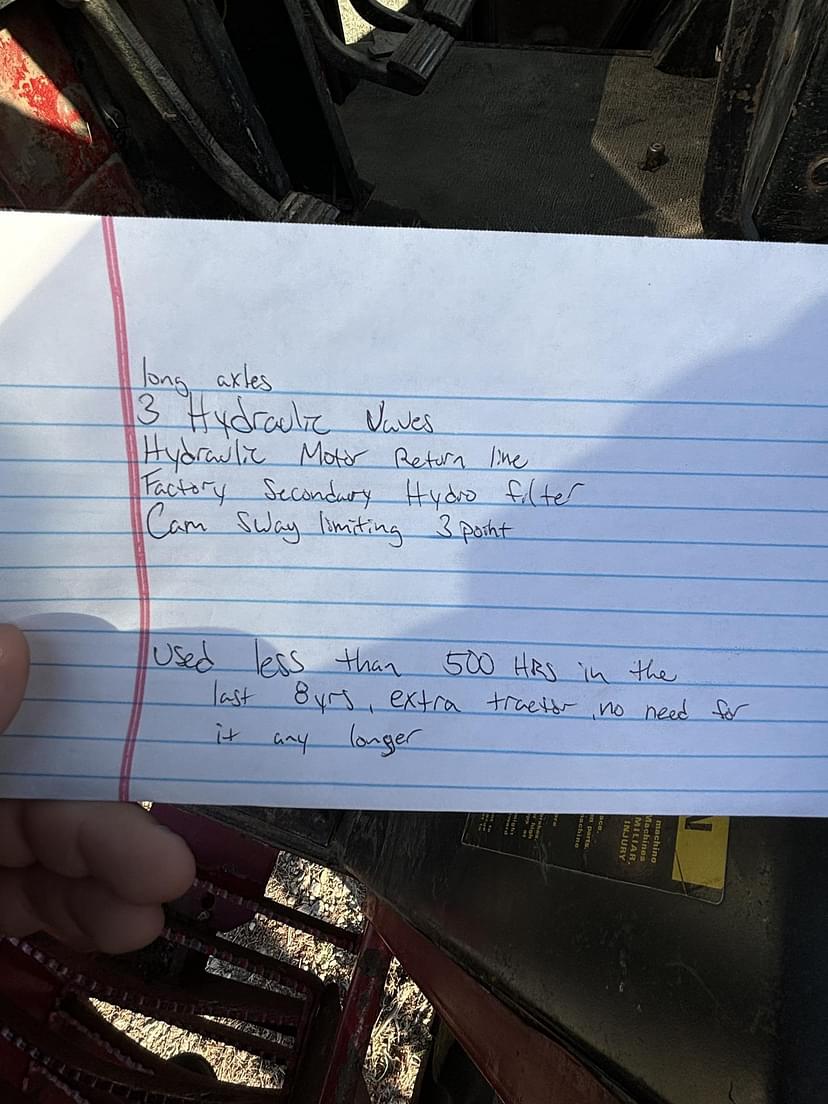 long axles
3 Hydraulic Vavles
Hydraulic Motor Return line
Factory Secondary Hydro filter
Cam Sway limiting 3 point
Used less than 500 HRS in the
last 8 yrs, extra tractor, no need for
it any longer
N
machine
Machines
MILIAR
INJURY.